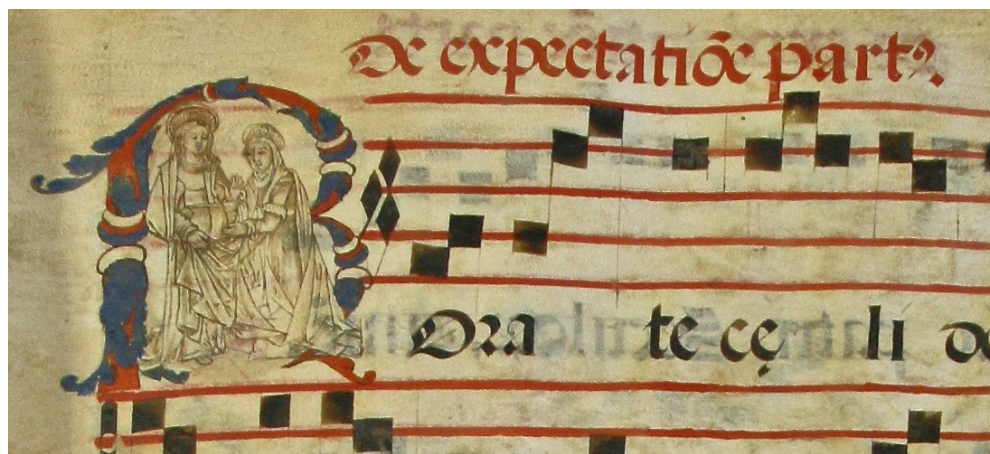 De expectatiōe partꝰ.
Rora te cę li de